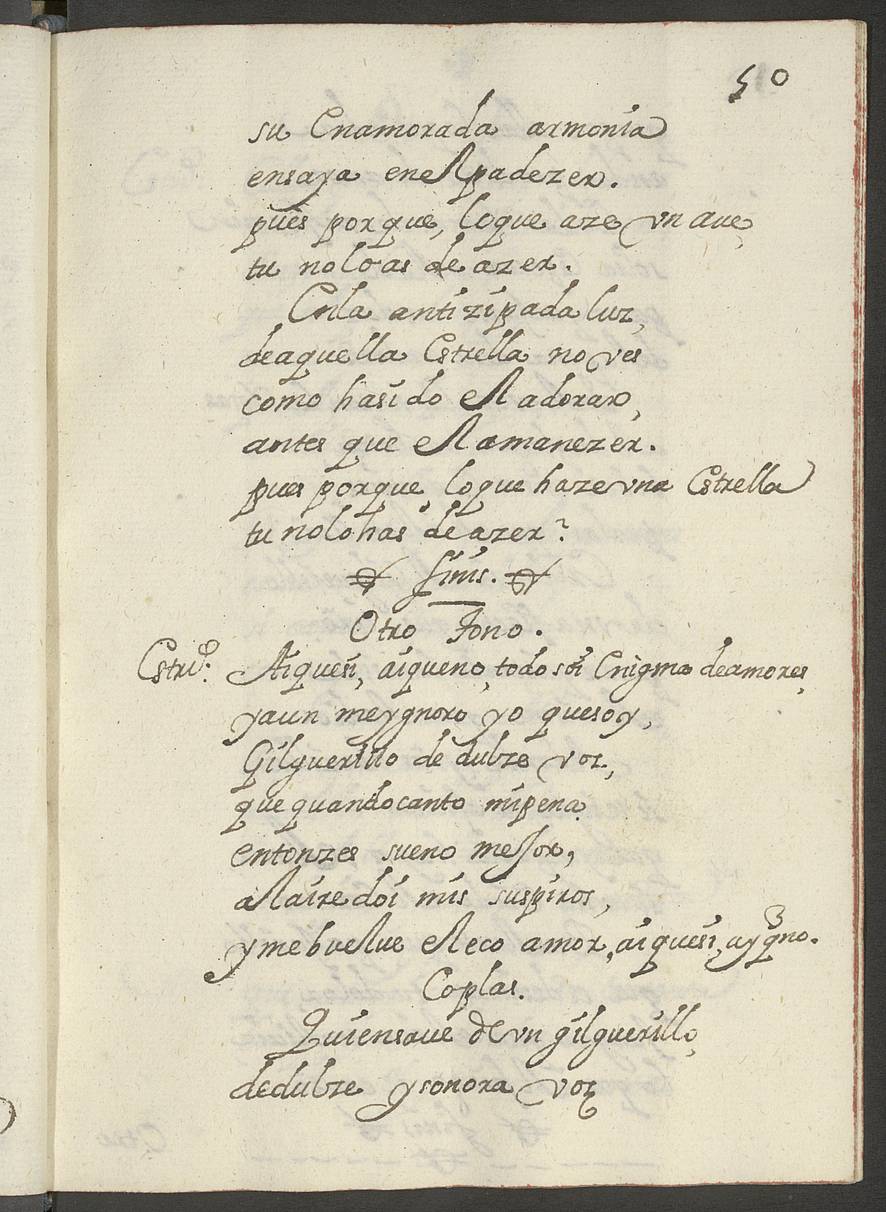 50
su Enamorada armonia
ensaya enel padezer.
pues porque, loque aze vn aue,
tu nolo as de azer.
Enla antizipada luz,
deaquella Estrella no ves
como hasido el adorar,
antes que el amanezer.
pues porque, loque haze vna Estrella
tu nolo has de azer?
finis.
Otro Tono.
Estriº. Aiquesi, aiqueno, todo soi Enigma deamores,
yaun meygnoro yo quesoy,
Gilguerillo de dulze voz,
que quando canto mipena
entonzes sueno mejor,
al aire doi mis suspiros,
y me buelue el eco amor, aiquesi, ay qno.
Coplas.
Quiensaue de vn gilguerillo,
dedulze ysonora voz